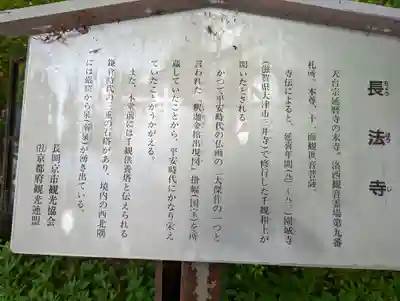 長法寺
ちょう ほう じ
天台宗延暦寺の末寺。洛西観音霊場第九番
札所。本尊、十一面観世音菩薩。
寺伝によると、延喜年間(九〇一～九二三)園城寺
(滋賀県大津市三井寺)で修行した千観和上が
開いたとされる。
かつて平安時代の仏画の二大傑作の一つと
言われた「釈迦金棺出現図」掛幅(国宝)を所
蔵していたことから、平安時代にかなり栄え
ていたことがうかがえる。
また、本堂前には千観供養塔と伝えられる
鎌倉時代の三重の石塔があり、境内の西北隅
には巌間から泉が湧き出ている。
長岡京市観光協会
京都府観光連盟